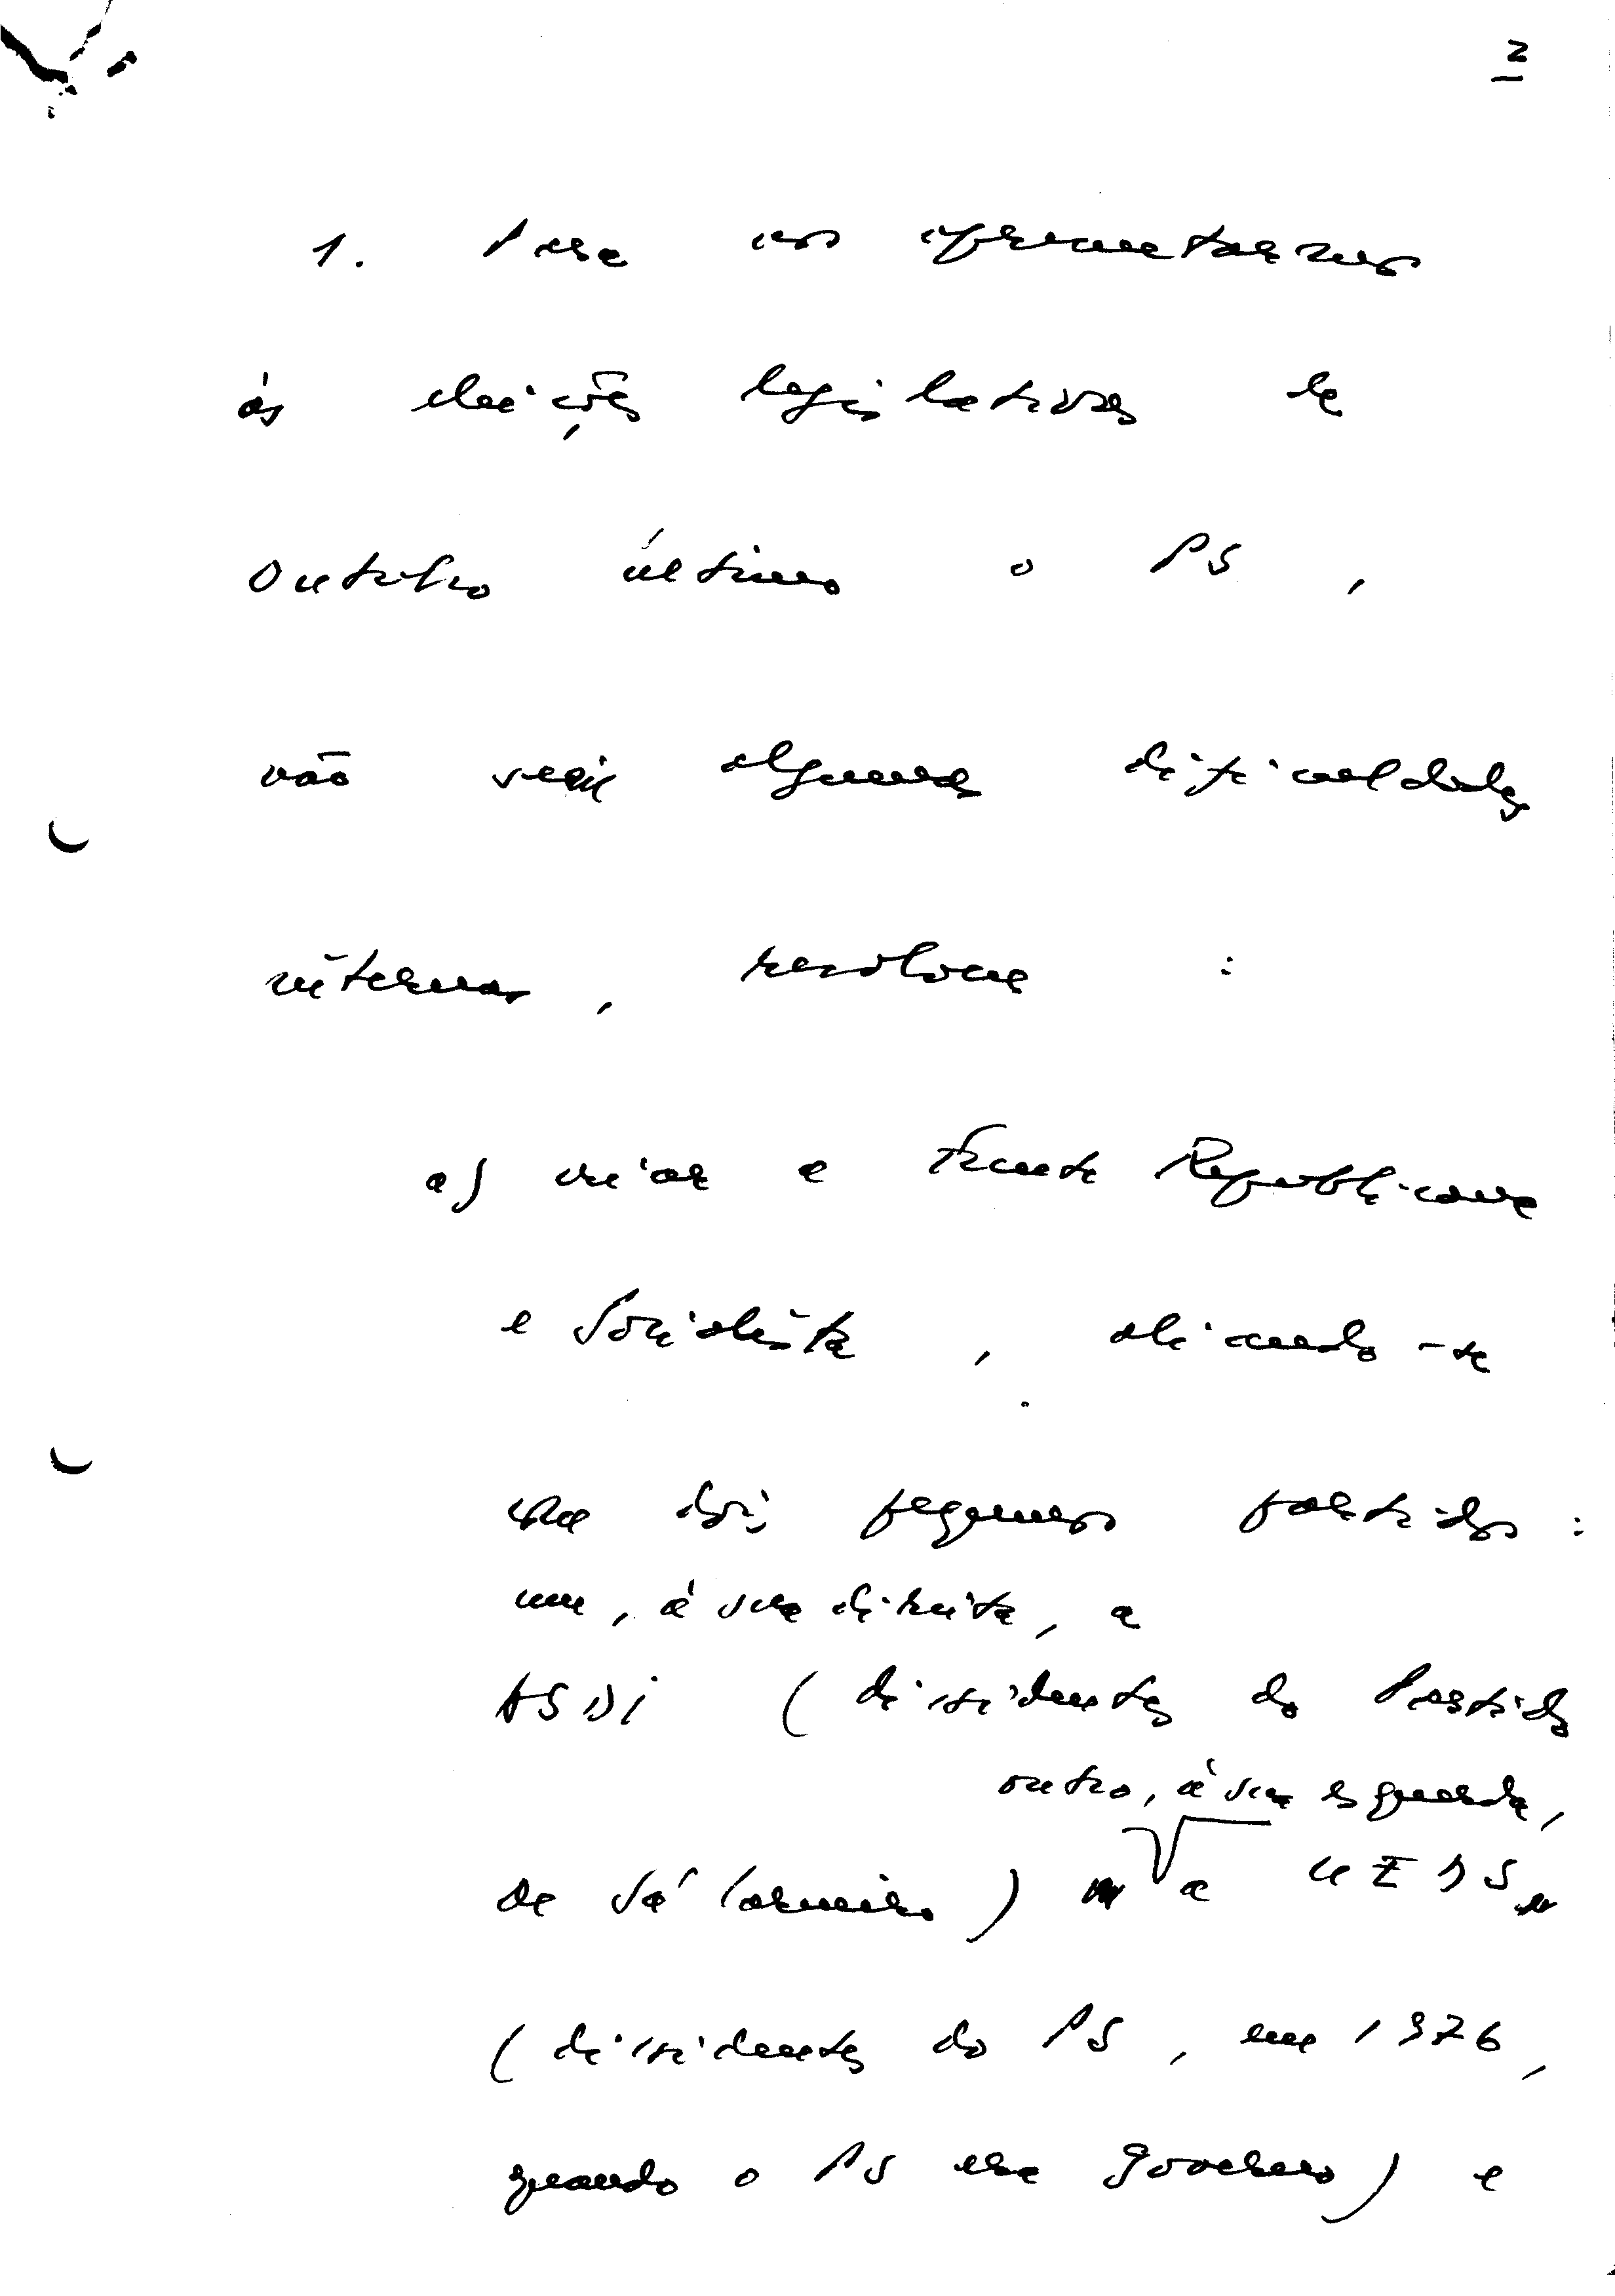 2
1. Para nos apresentarmos
às eleições legislativas de
Outubro último o PS,
não sem algumas dificuldades
internas, resolveu:
a) criar a Frente Republicana
e Socialista, aliando-se
com dois pequenos partidos:
um, à sua direita, a
ASDI (dissidentes do Partido
outro, à sua esquerda,
de Sá Carneiro) a UEDS
(dissidentes do PS, em 1976,
quando o PS era Governo) e